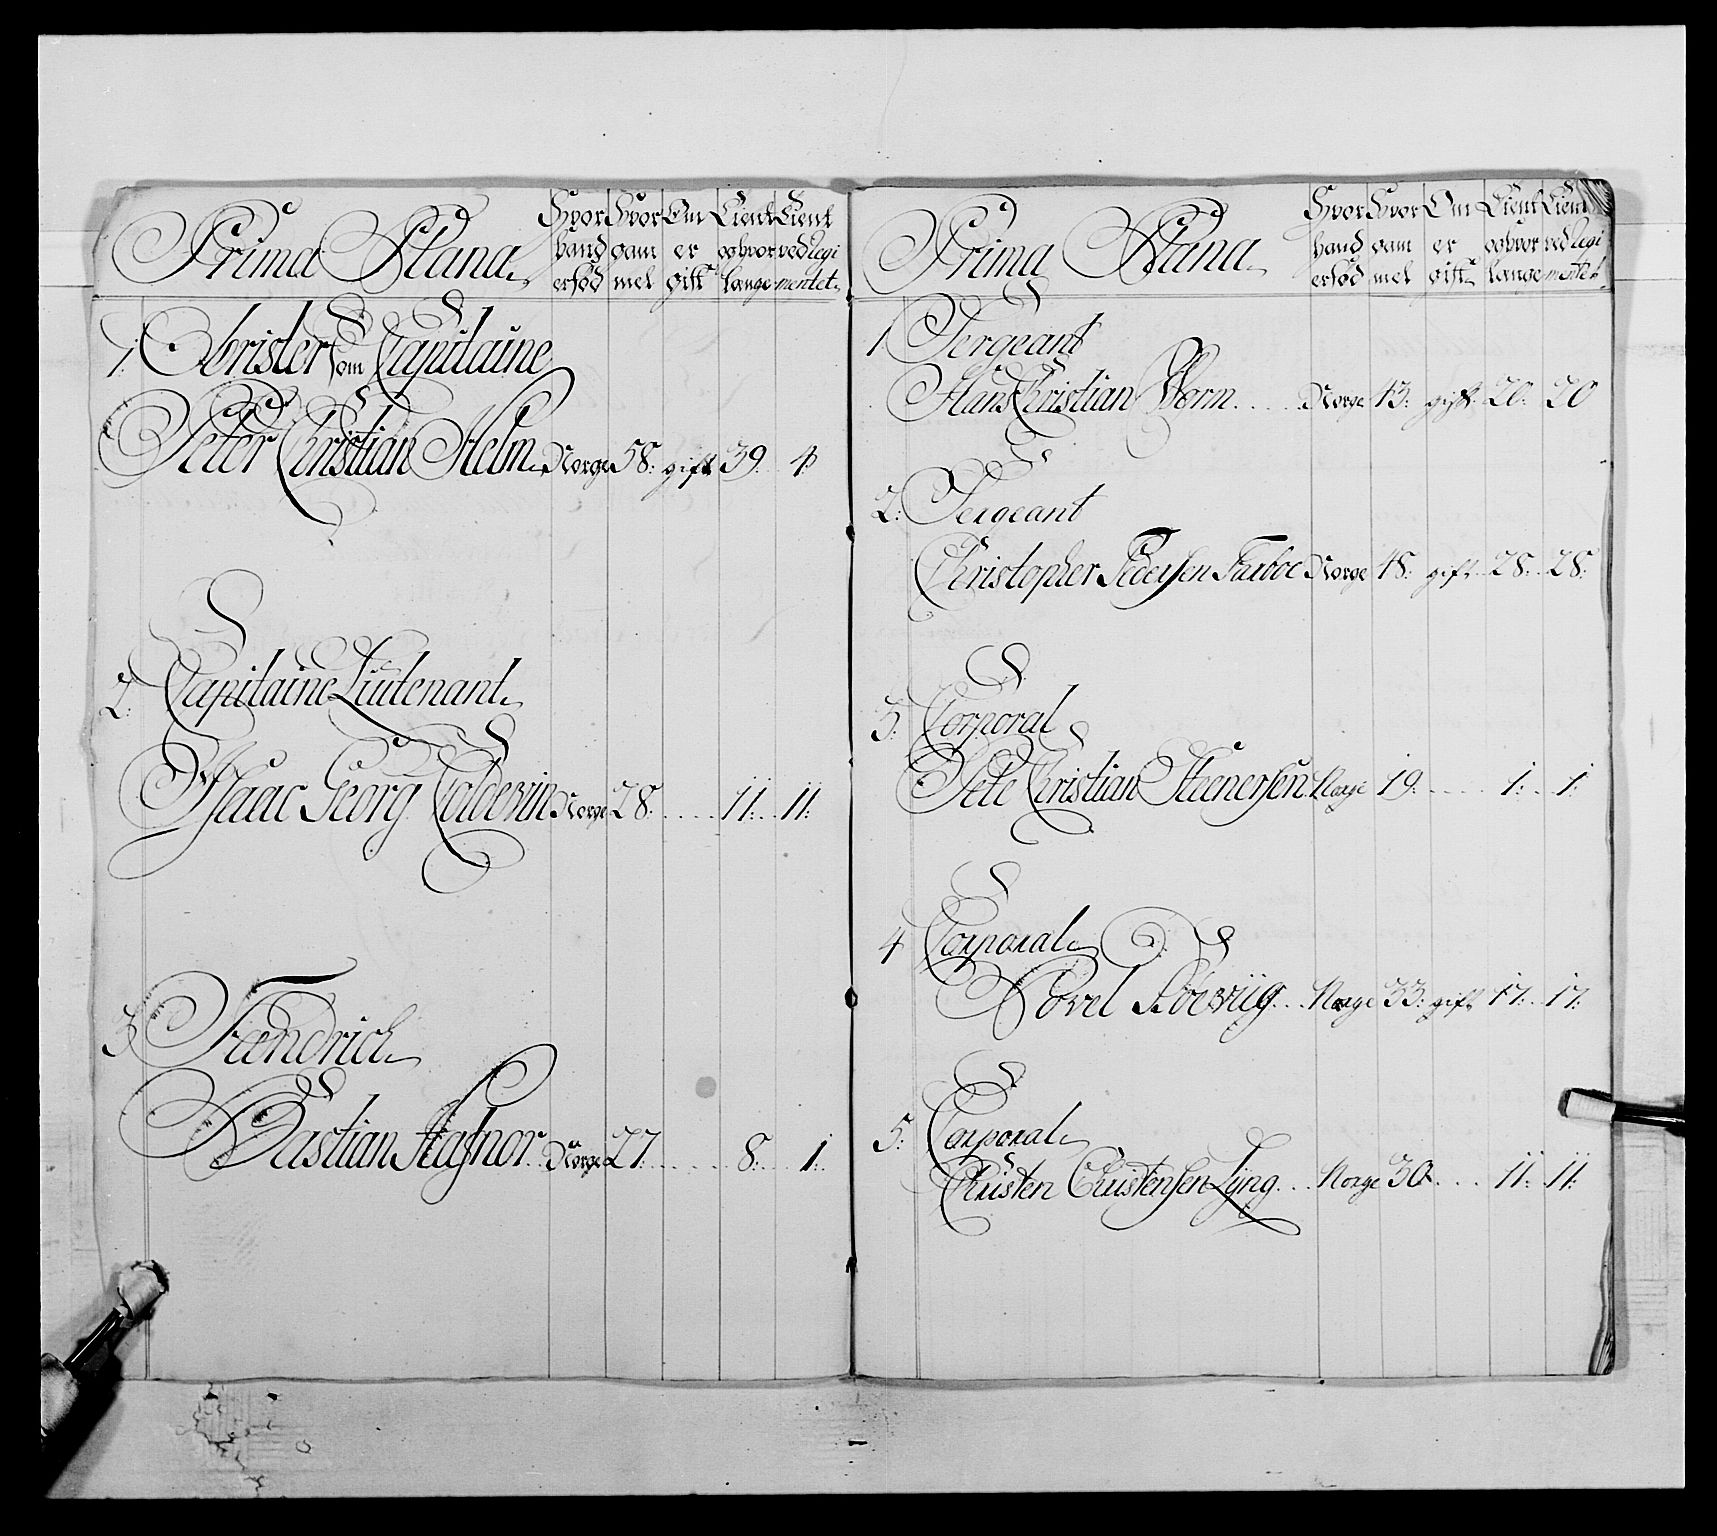 Prima Plana.
Hvor hand er fød
Hvor gammel
Om er gift
Tient og hvor længe
Tient ved Regimentet.
1. Obrister som Capitaine
Peter Christian Helm. Norge 58. gift 39. 4
2. Capitaine Liutenant.
Isaac Georg Coldevin Norge 28. 11. 11.
3 Fændrich.
Bastian Stasnor. Norge 27. 8. 1.
Prima Plana.
Hvor hand er fød
Hvor gammel
Om er gift
Tient og hvor længe
Tient ved Regimentet.
1 Sergeant
Hans Christian Worm. Norge 43. gift. 20. 20
2. Sergeant
Christopher Pedersen Farboe Norge 48. gift. 28. 28.
3. Corporal
Pete Christian Steenersen Norge 19. 1. 1.
4 Corporal.
Povel Norge 33. gift 17. 17.
5. Corporal.
Christen Christensen Lÿng. Norge 30. 11. 11.